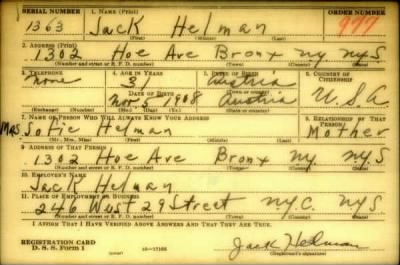 SERIAL NUMBER 1. NAME (Print) ORDER NUMBER
1363 Jack Helman 977
(First) (Middle) (Last)
2. ADDRESS (Print)
1302 Hoe Ave Bronx NY NYS
(Number and street or R. F. D. number) (Town) (County) (State)
3. TELEPHONE 4. AGE IN YEARS 5. PLACE OF BIRTH 6. COUNTRY OF CITIZENSHIP
None 31 Austria
DATE OF BIRTH
Nov 5 1908 Austria U.S.A
(Exchange) (Number) (Mo.) (Day) (Yr.) (State or country)
7. NAME OF PERSON WHO WILL ALWAYS KNOW YOUR ADDRESS 8. RELATIONSHIP OF THAT PERSON
Mrs Sofie Helman Mother
(Mr., Mrs., Miss) (First) (Middle) (Last)
9. ADDRESS OF THAT PERSON
1302 Hoe Ave Bronx NY. NY.S
(Number and street or R. F. D. number) (Town) (County) (State)
10. EMPLOYER'S NAME
Jack Helman
11. PLACE OF EMPLOYMENT OR BUSINESS
246 West 29 Street N.Y.C. NYS
(Number and street or R. F. D. number) (Town) (County) (State)
I AFFIRM THAT I HAVE VERIFIED ABOVE ANSWERS AND THAT THEY ARE TRUE.
REGISTRATION CARD
D. S. S. Form 1 16—17105 Jack Helman
(Registrant's signature)